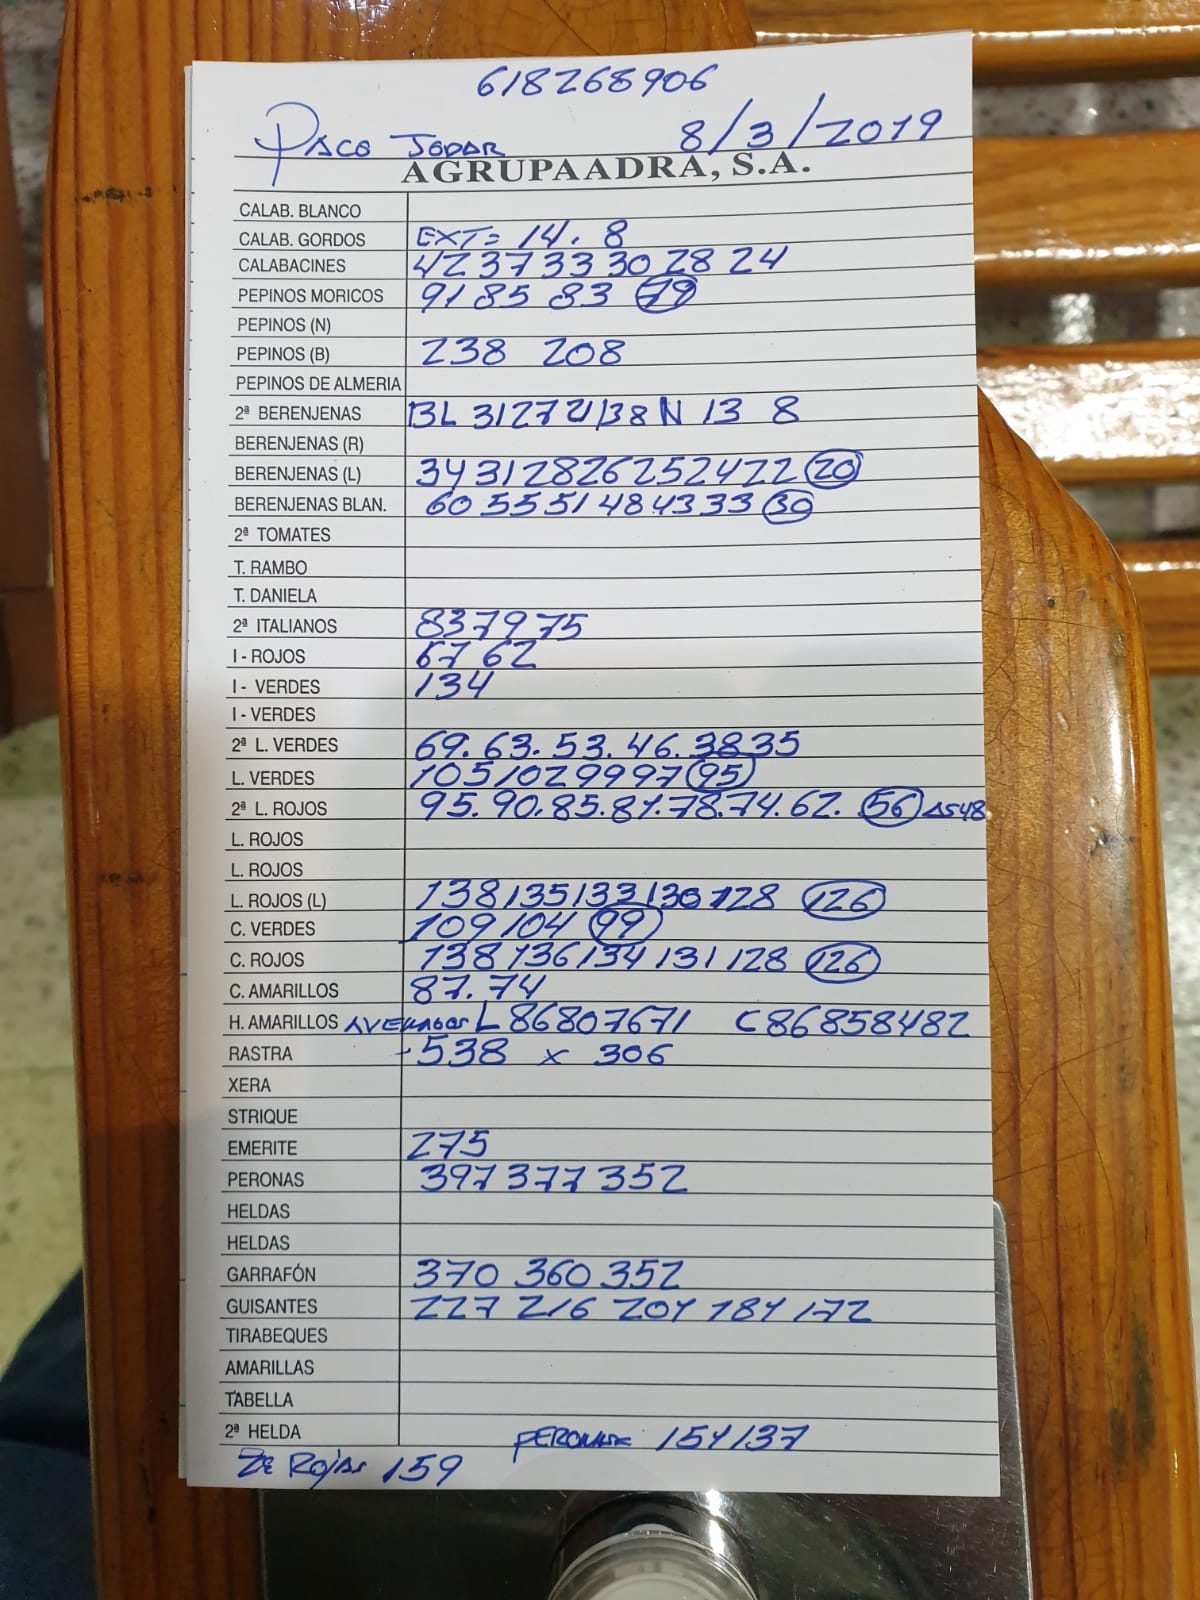 618268906
PACO JODAR 8/3/2019
AGRUPAADRA, S.A.
CALAB. BLANCO
CALAB. GORDOS EXT= 14. 8
CALABACINES 42 37 33 30 28 24
PEPINOS MORICOS 91 85 83 79
PEPINOS (N)
PEPINOS (B) 238 208
PEPINOS DE ALMERIA
2ª BERENJENAS BL 31 27 21 B8 N 13 8
BERENJENAS (R)
BERENJENAS (L) 34 31 28 26 25 24 22 20
BERENJENAS BLAN. 60 55 51 48 43 33 30
2ª TOMATES
T. RAMBO
T. DANIELA
2ª ITALIANOS 83 79 75
I - ROJOS 67 62
I - VERDES 134
I - VERDES
2ª L. VERDES 69. 63. 53. 46. 38 35
L. VERDES 105 102 99 97 95
2ª L. ROJOS 95. 90. 85. 81. 78. 74. 62. 56 AS 48
L. ROJOS
L. ROJOS
L. ROJOS (L) 138 135 133 130 128 126
C. VERDES 109 104 99
C. ROJOS 138 136 134 131 128 126
C. AMARILLOS 87. 74
H. AMARILLOS L 86 80 76 71 C 86 85 84 82
RASTRA -538 x 306
XERA
STRIQUE
EMERITE 275
PERONAS 397 377 352
HELDAS
HELDAS
GARRAFÓN 370 360 352
GUISANTES 227 216 201 181 172
TIRABEQUES
AMARILLAS
TABELLA
2ª HELDA PERONAS 151 137
2ª ROJAS 159